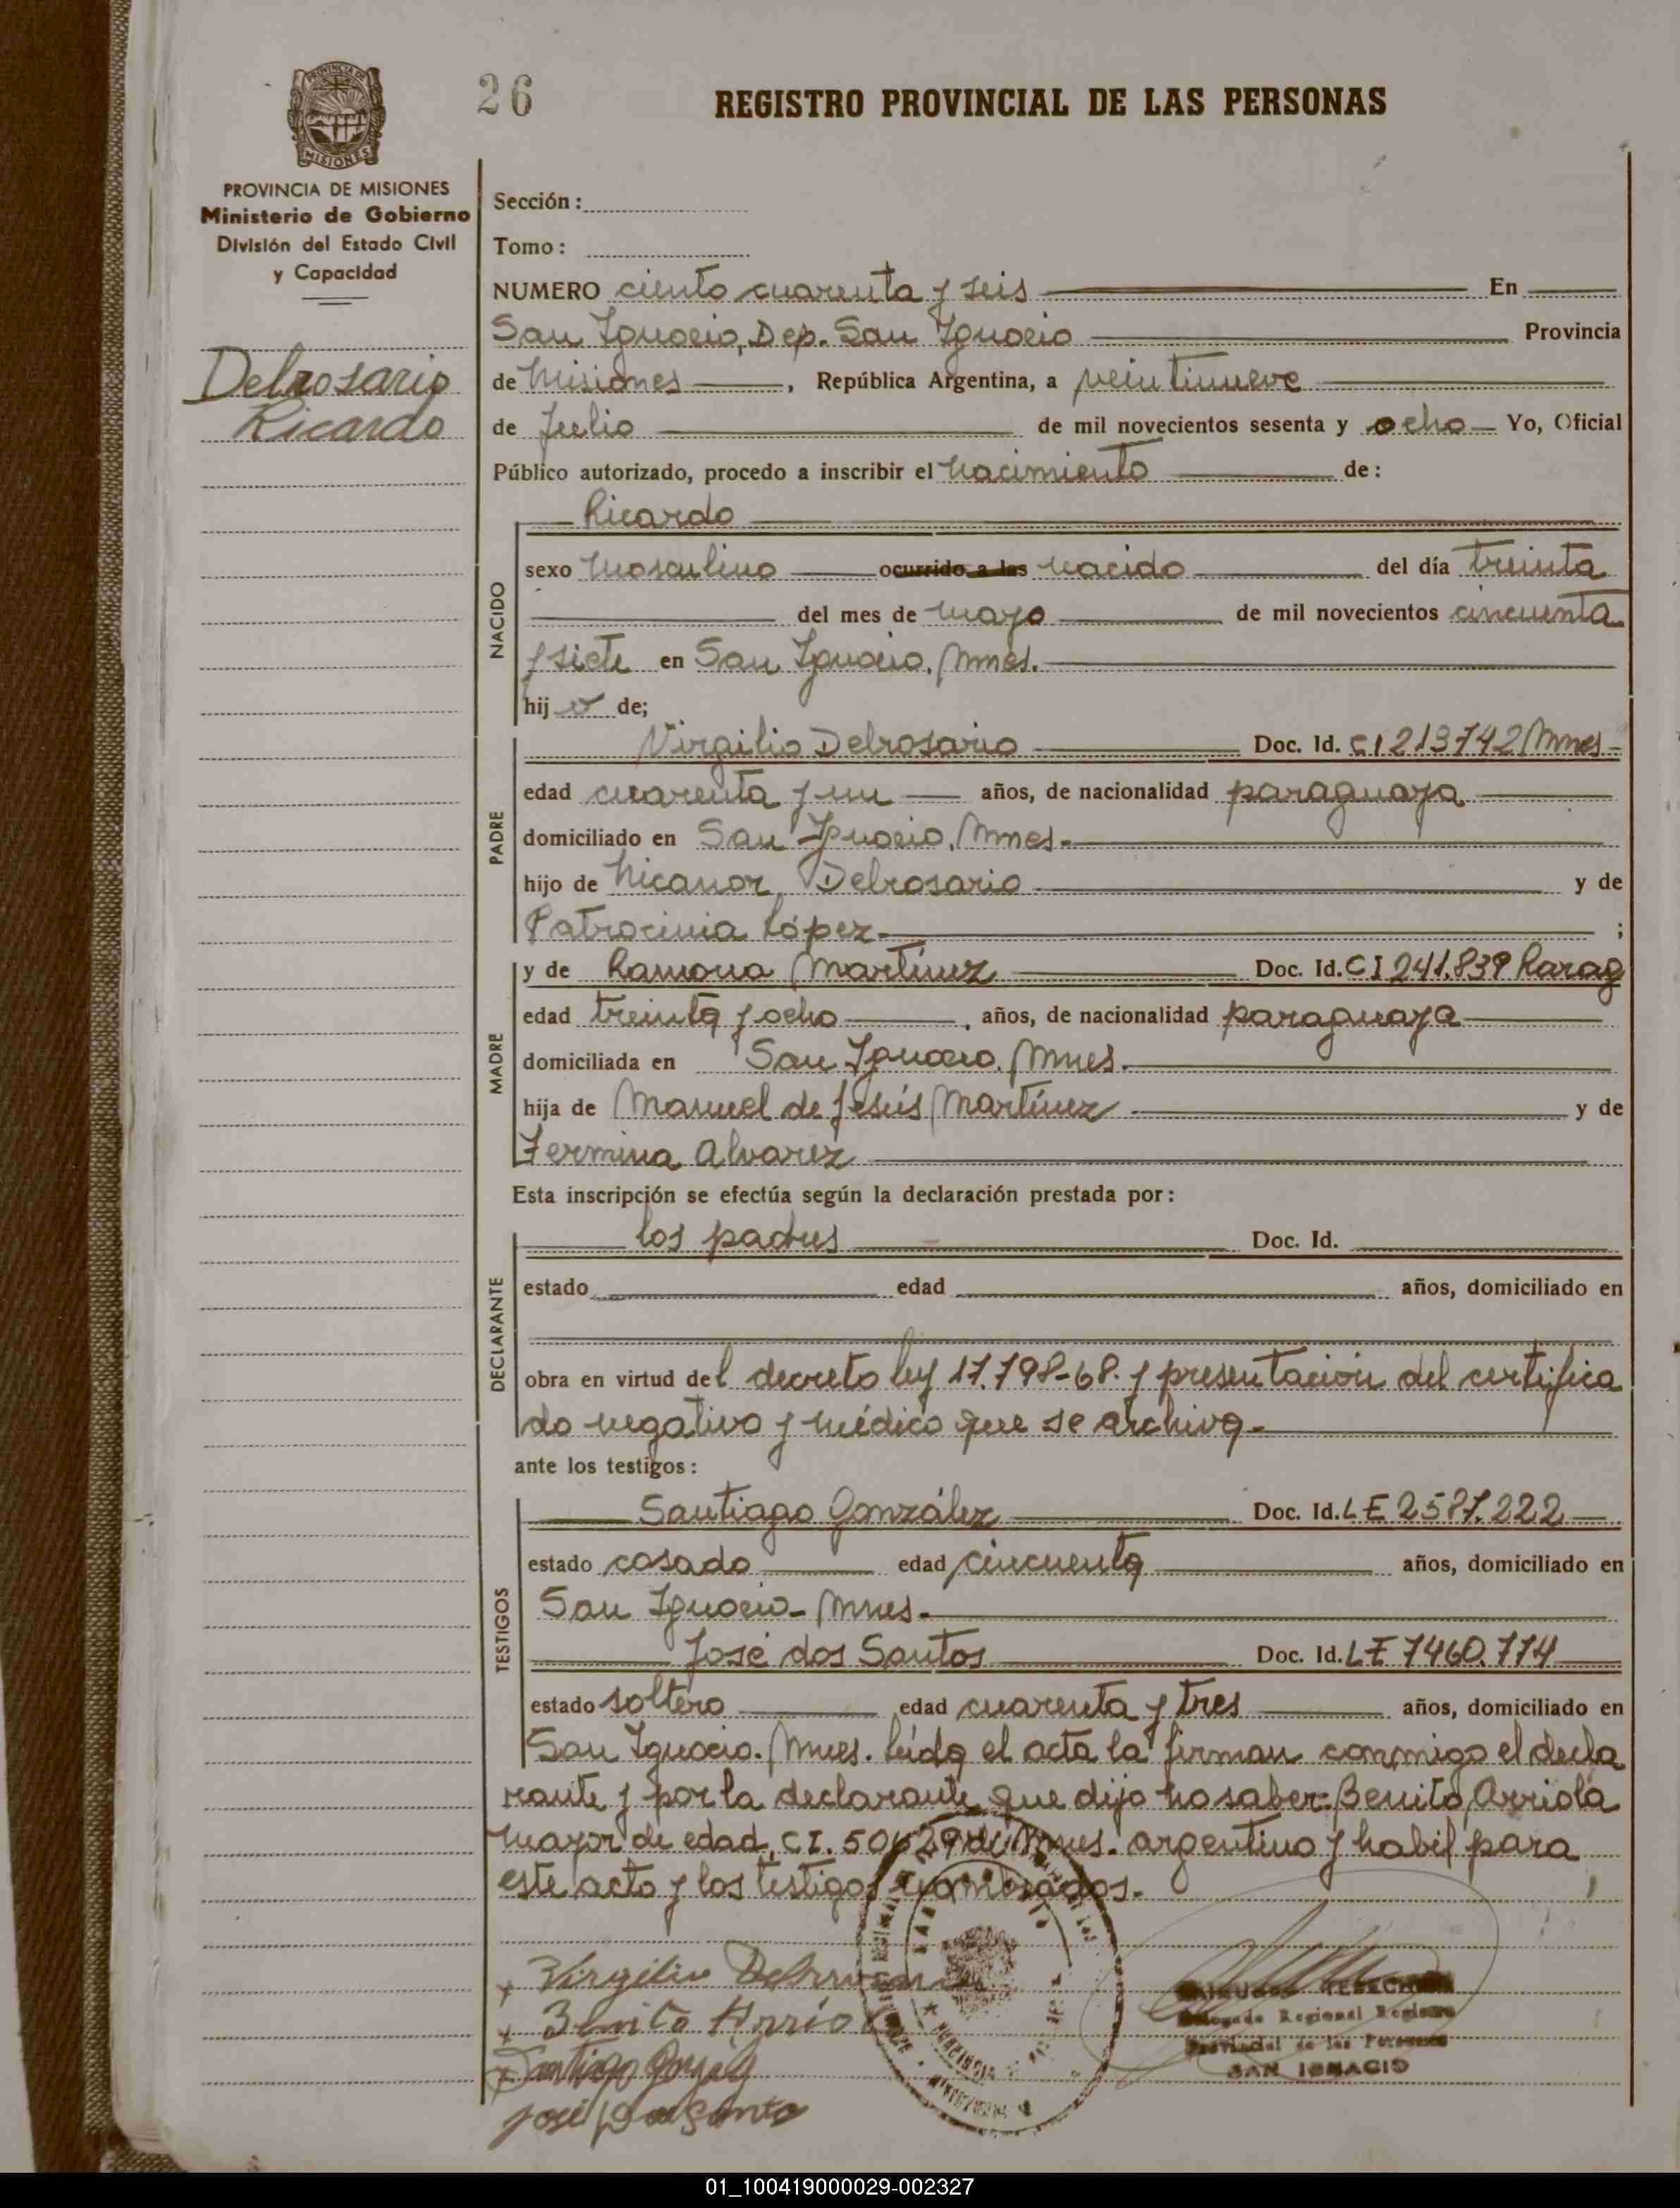 26
REGISTRO PROVINCIAL DE LAS PERSONAS
PROVINCIA DE
MISIONES
PROVINCIA DE MISIONES
Ministerio de Gobierno
División del Estado Civil
y Capacidad
Delrosario
Ricardo
Sección:
Tomo:
NUMERO ciento cuarenta y seis En
San Ignacio, Dep. San Ignacio Provincia
de Misiones, República Argentina, a veintinueve
de Julio de mil novecientos sesenta y ocho Yo, Oficial
Público autorizado, procedo a inscribir el nacimiento de:
NACIDO
Ricardo
sexo masculino ocurrido a las nacido del día treinta
del mes de mayo de mil novecientos cincuenta
y siete en San Ignacio, Mnes.
hijo de;
PADRE
Virgilio Delrosario Doc. Id. CI 213742 Mnes
edad cuarenta y un años, de nacionalidad paraguaya
domiciliado en San Ignacio, Mnes.
hijo de Nicanor Delrosario y de
Patrocinia López ;
MADRE
y de Ramona Martínez Doc. Id. CI 241.839 Parag
edad treinta y ocho, años, de nacionalidad paraguaya
domiciliada en San Ignacio, Mnes.
hija de Manuel de Jesús Martínez y de
Fermina Alvarez
Esta inscripción se efectúa según la declaración prestada por:
DECLARANTE
los padres Doc. Id.
estado edad años, domiciliado en
obra en virtud del decreto ley 17.798-68. y presentación del certifica
do negativo y médico que se archiva.
ante los testigos:
TESTIGOS
Santiago González Doc. Id. LE 2587.222
estado casado edad cincuenta años, domiciliado en
San Ignacio - Mnes.
José dos Santos Doc. Id. LE 7460.774
estado soltero edad cuarenta y tres años, domiciliado en
San Ignacio. Mnes. leída el acta la firman conmigo el decla
rante y por la declarante que dijo no saber: Benito Arriola
mayor de edad, CI. de Mnes. argentino y habil para
este acto y los testigos nombrados.
Virgilio Delrosario
Benito Arriola
Santiago
José Dos Santo
Delegado Regional Registro
Provincial de las Personas
SAN IGNACIO
01_100419000029-002327